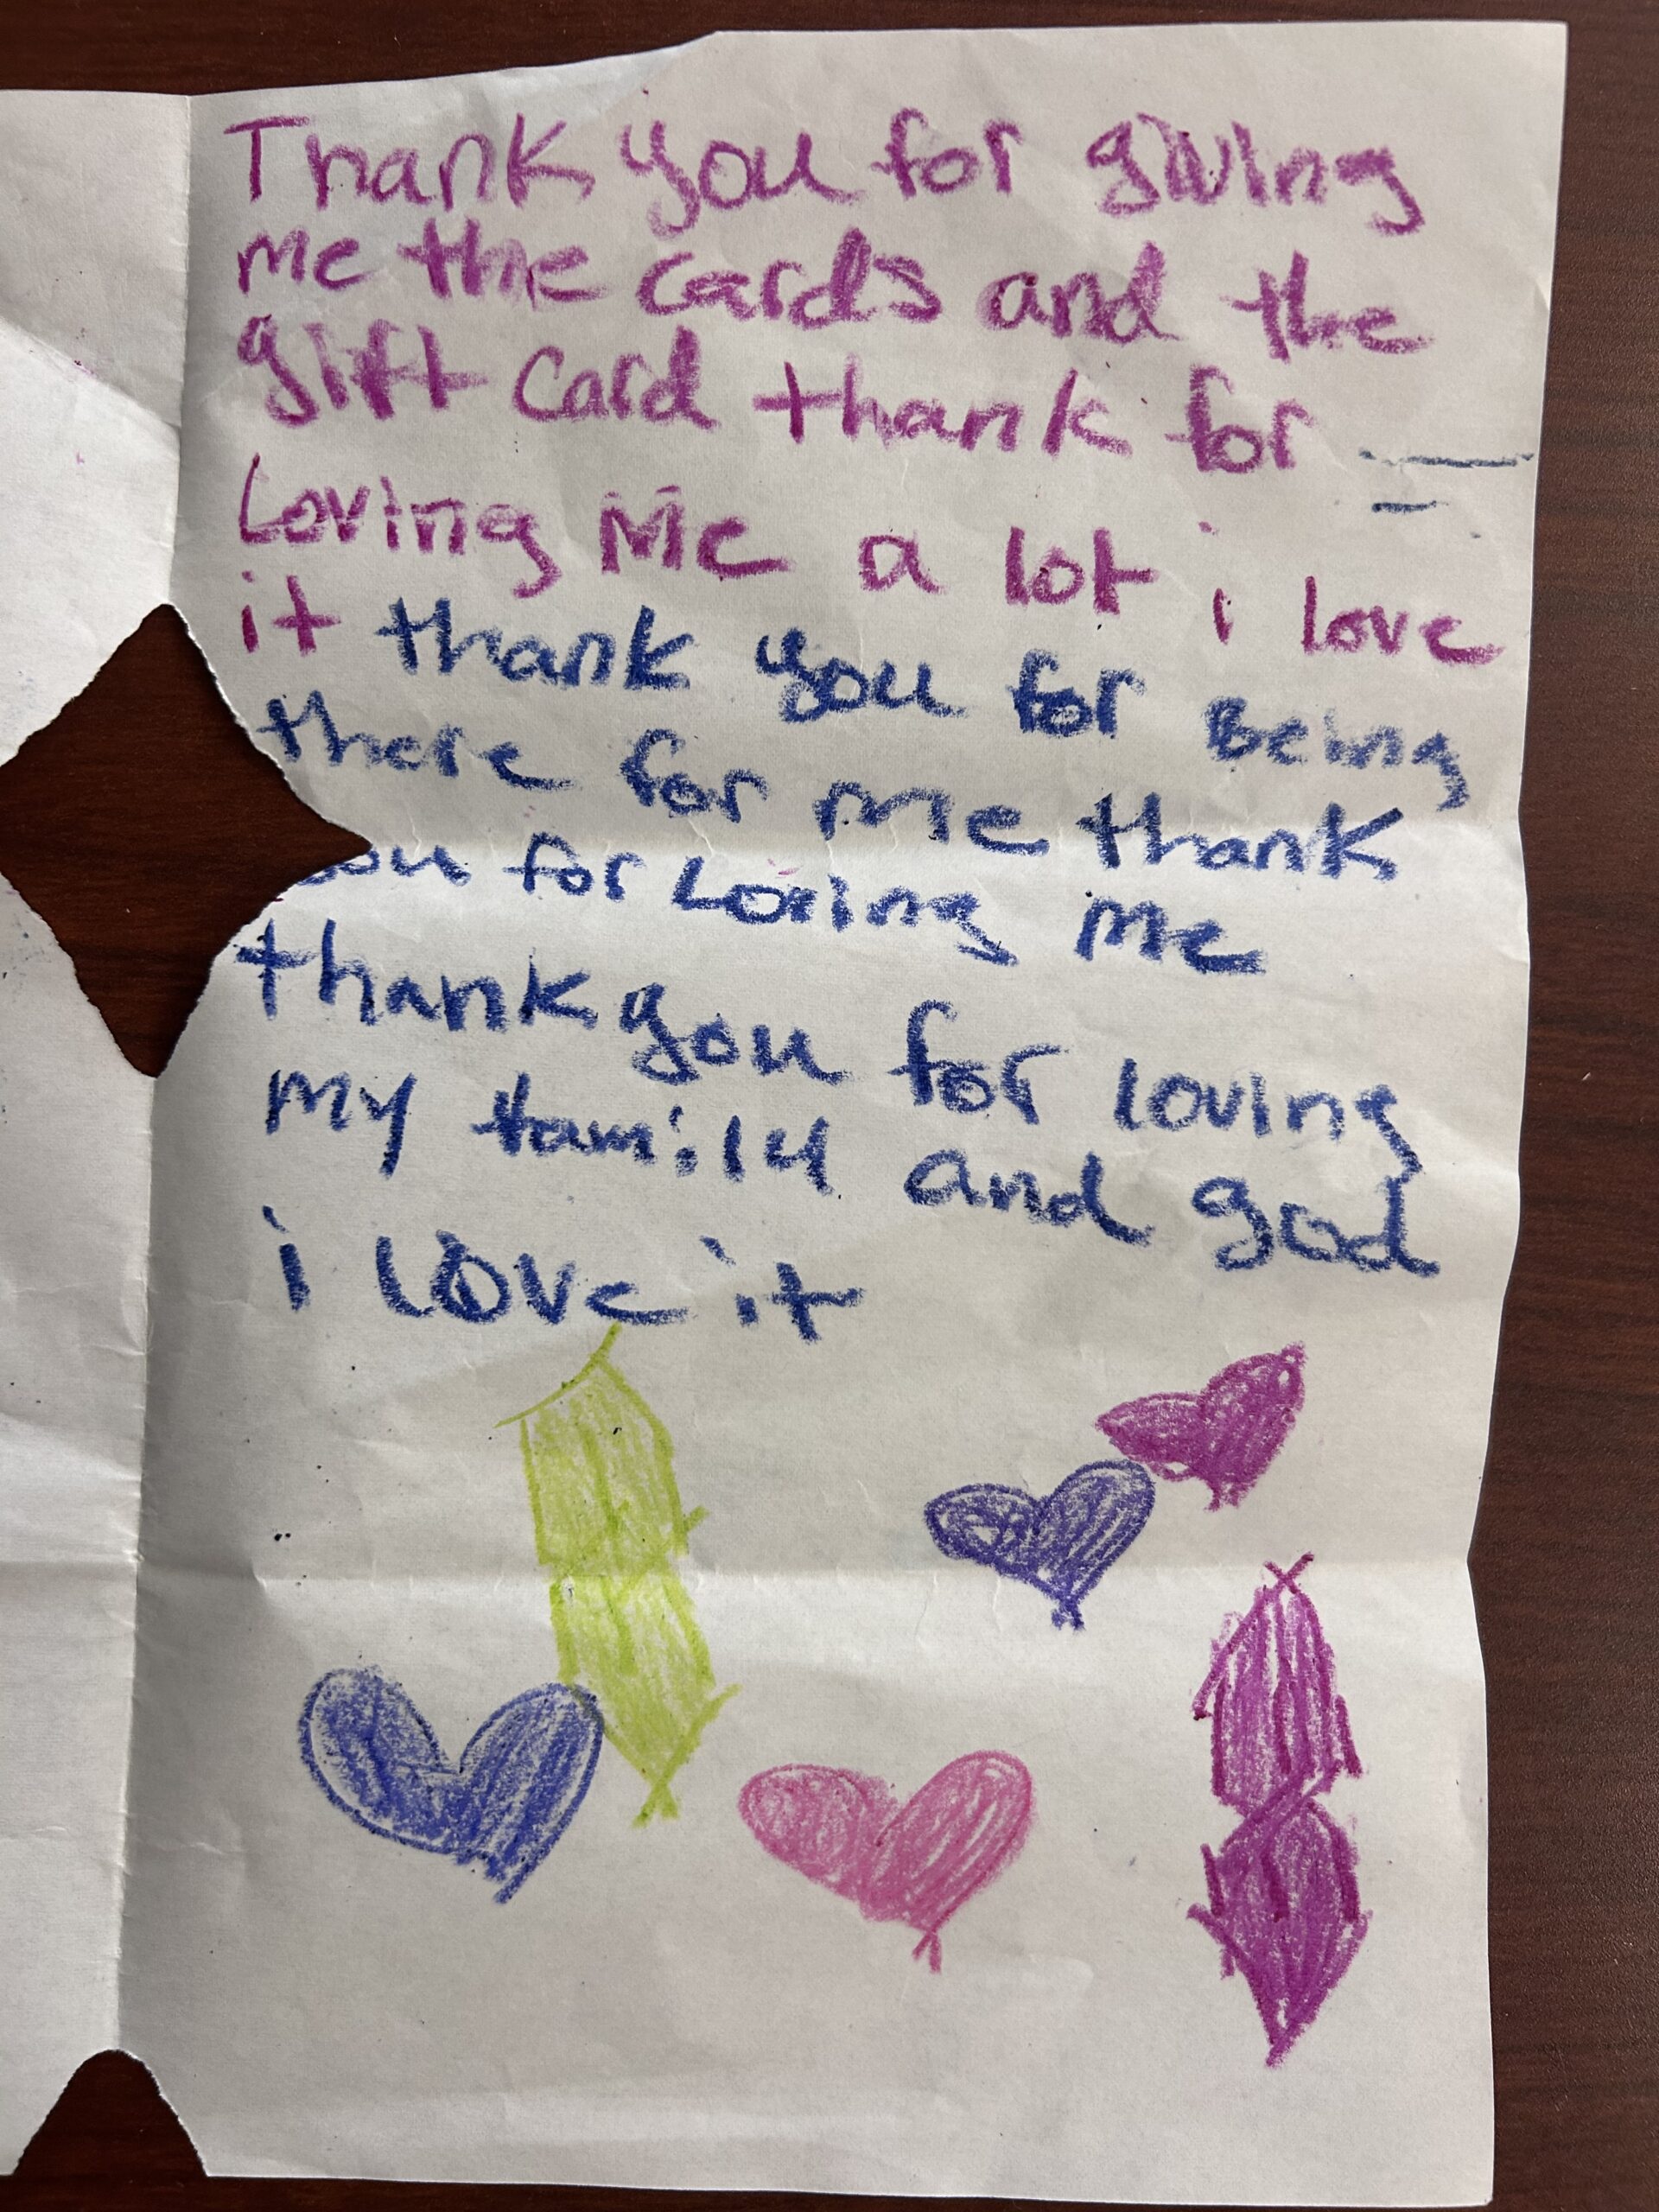 Thank you for giving
me the cards and the
gift card thank for
Loving Me a lot i love
it thank you for Being
there for me thank
ou for Loving Me
thank you for loving
my family and god
i love it